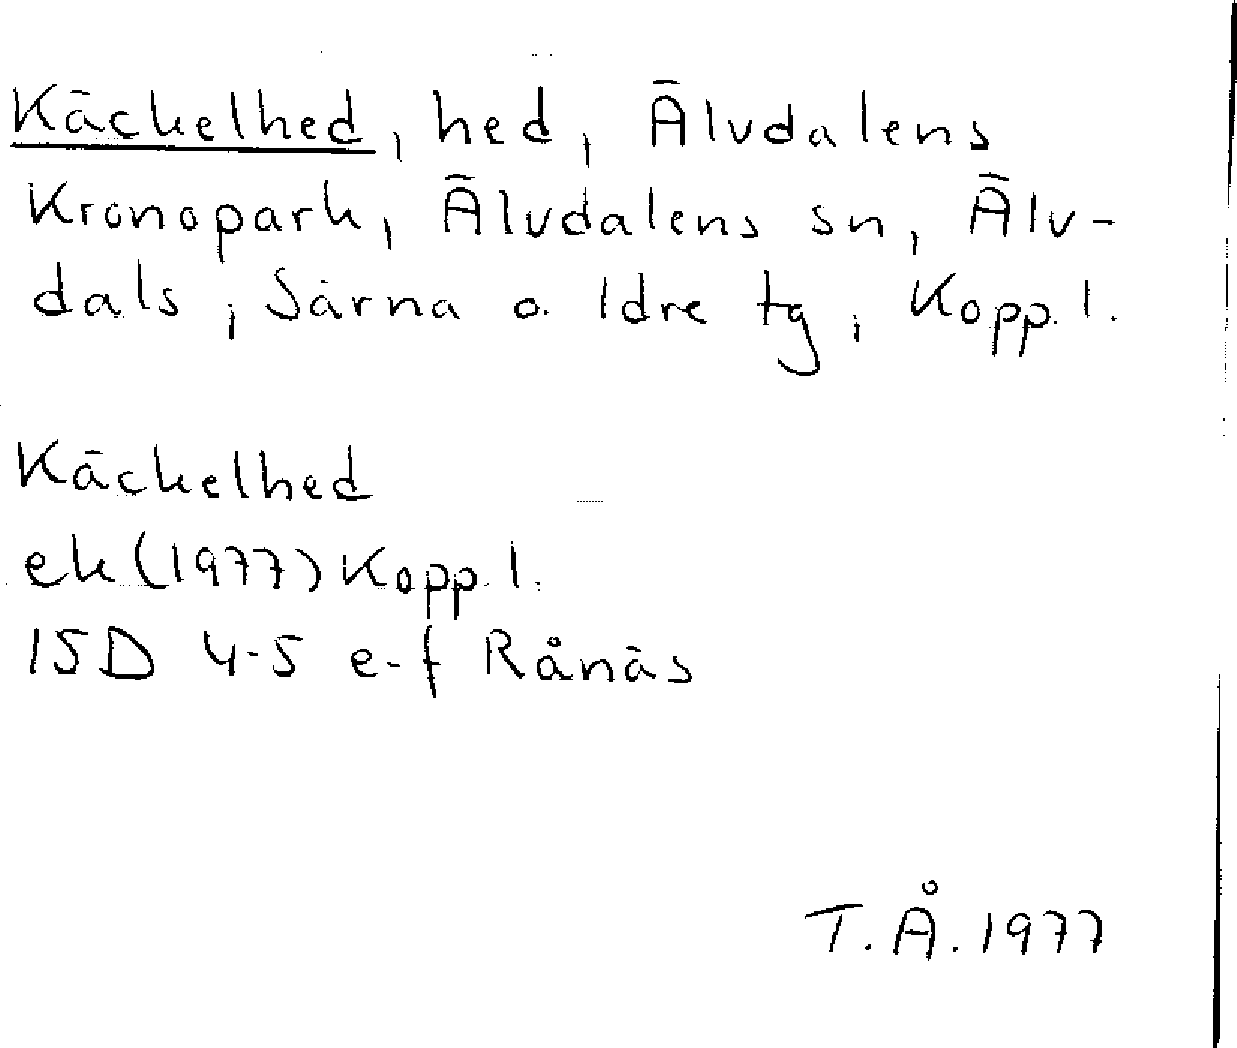 Käckelhed, hed, Älvdalens
Kronopark, Älvdalens sn, Älv-
dals, Särna o. Idre tg, Kopp. l.
Käckelhed
ek (1977) Kopp. l.
15D 4-5 e-f Rånäs
T.Å. 1977